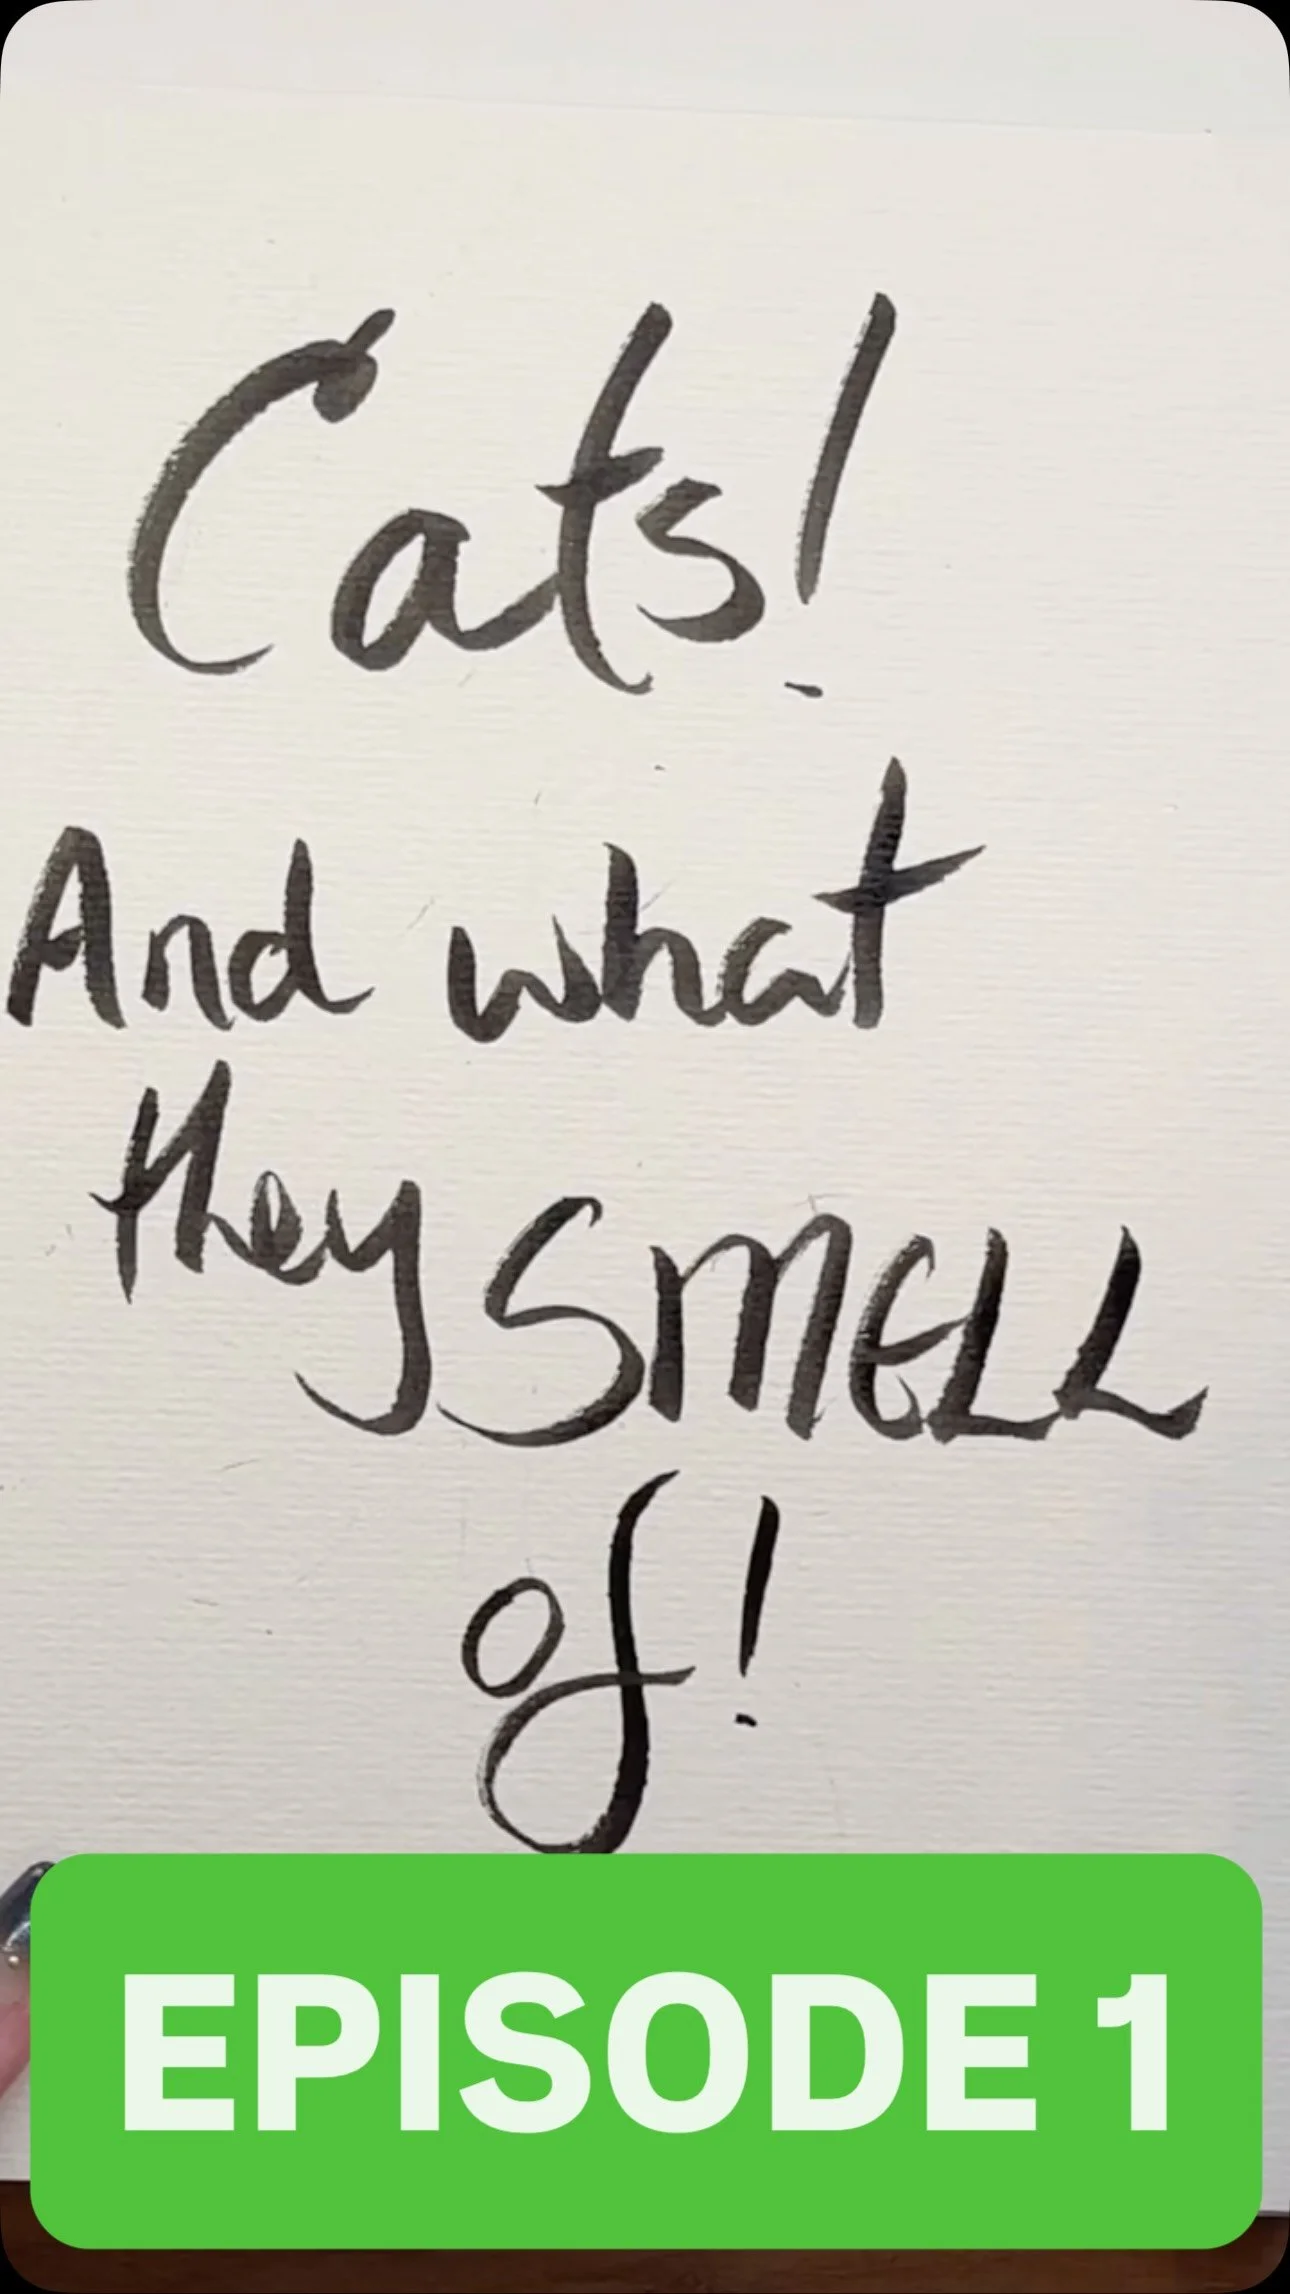 Cats!
And what
they SMELL
of!
EPISODE 1